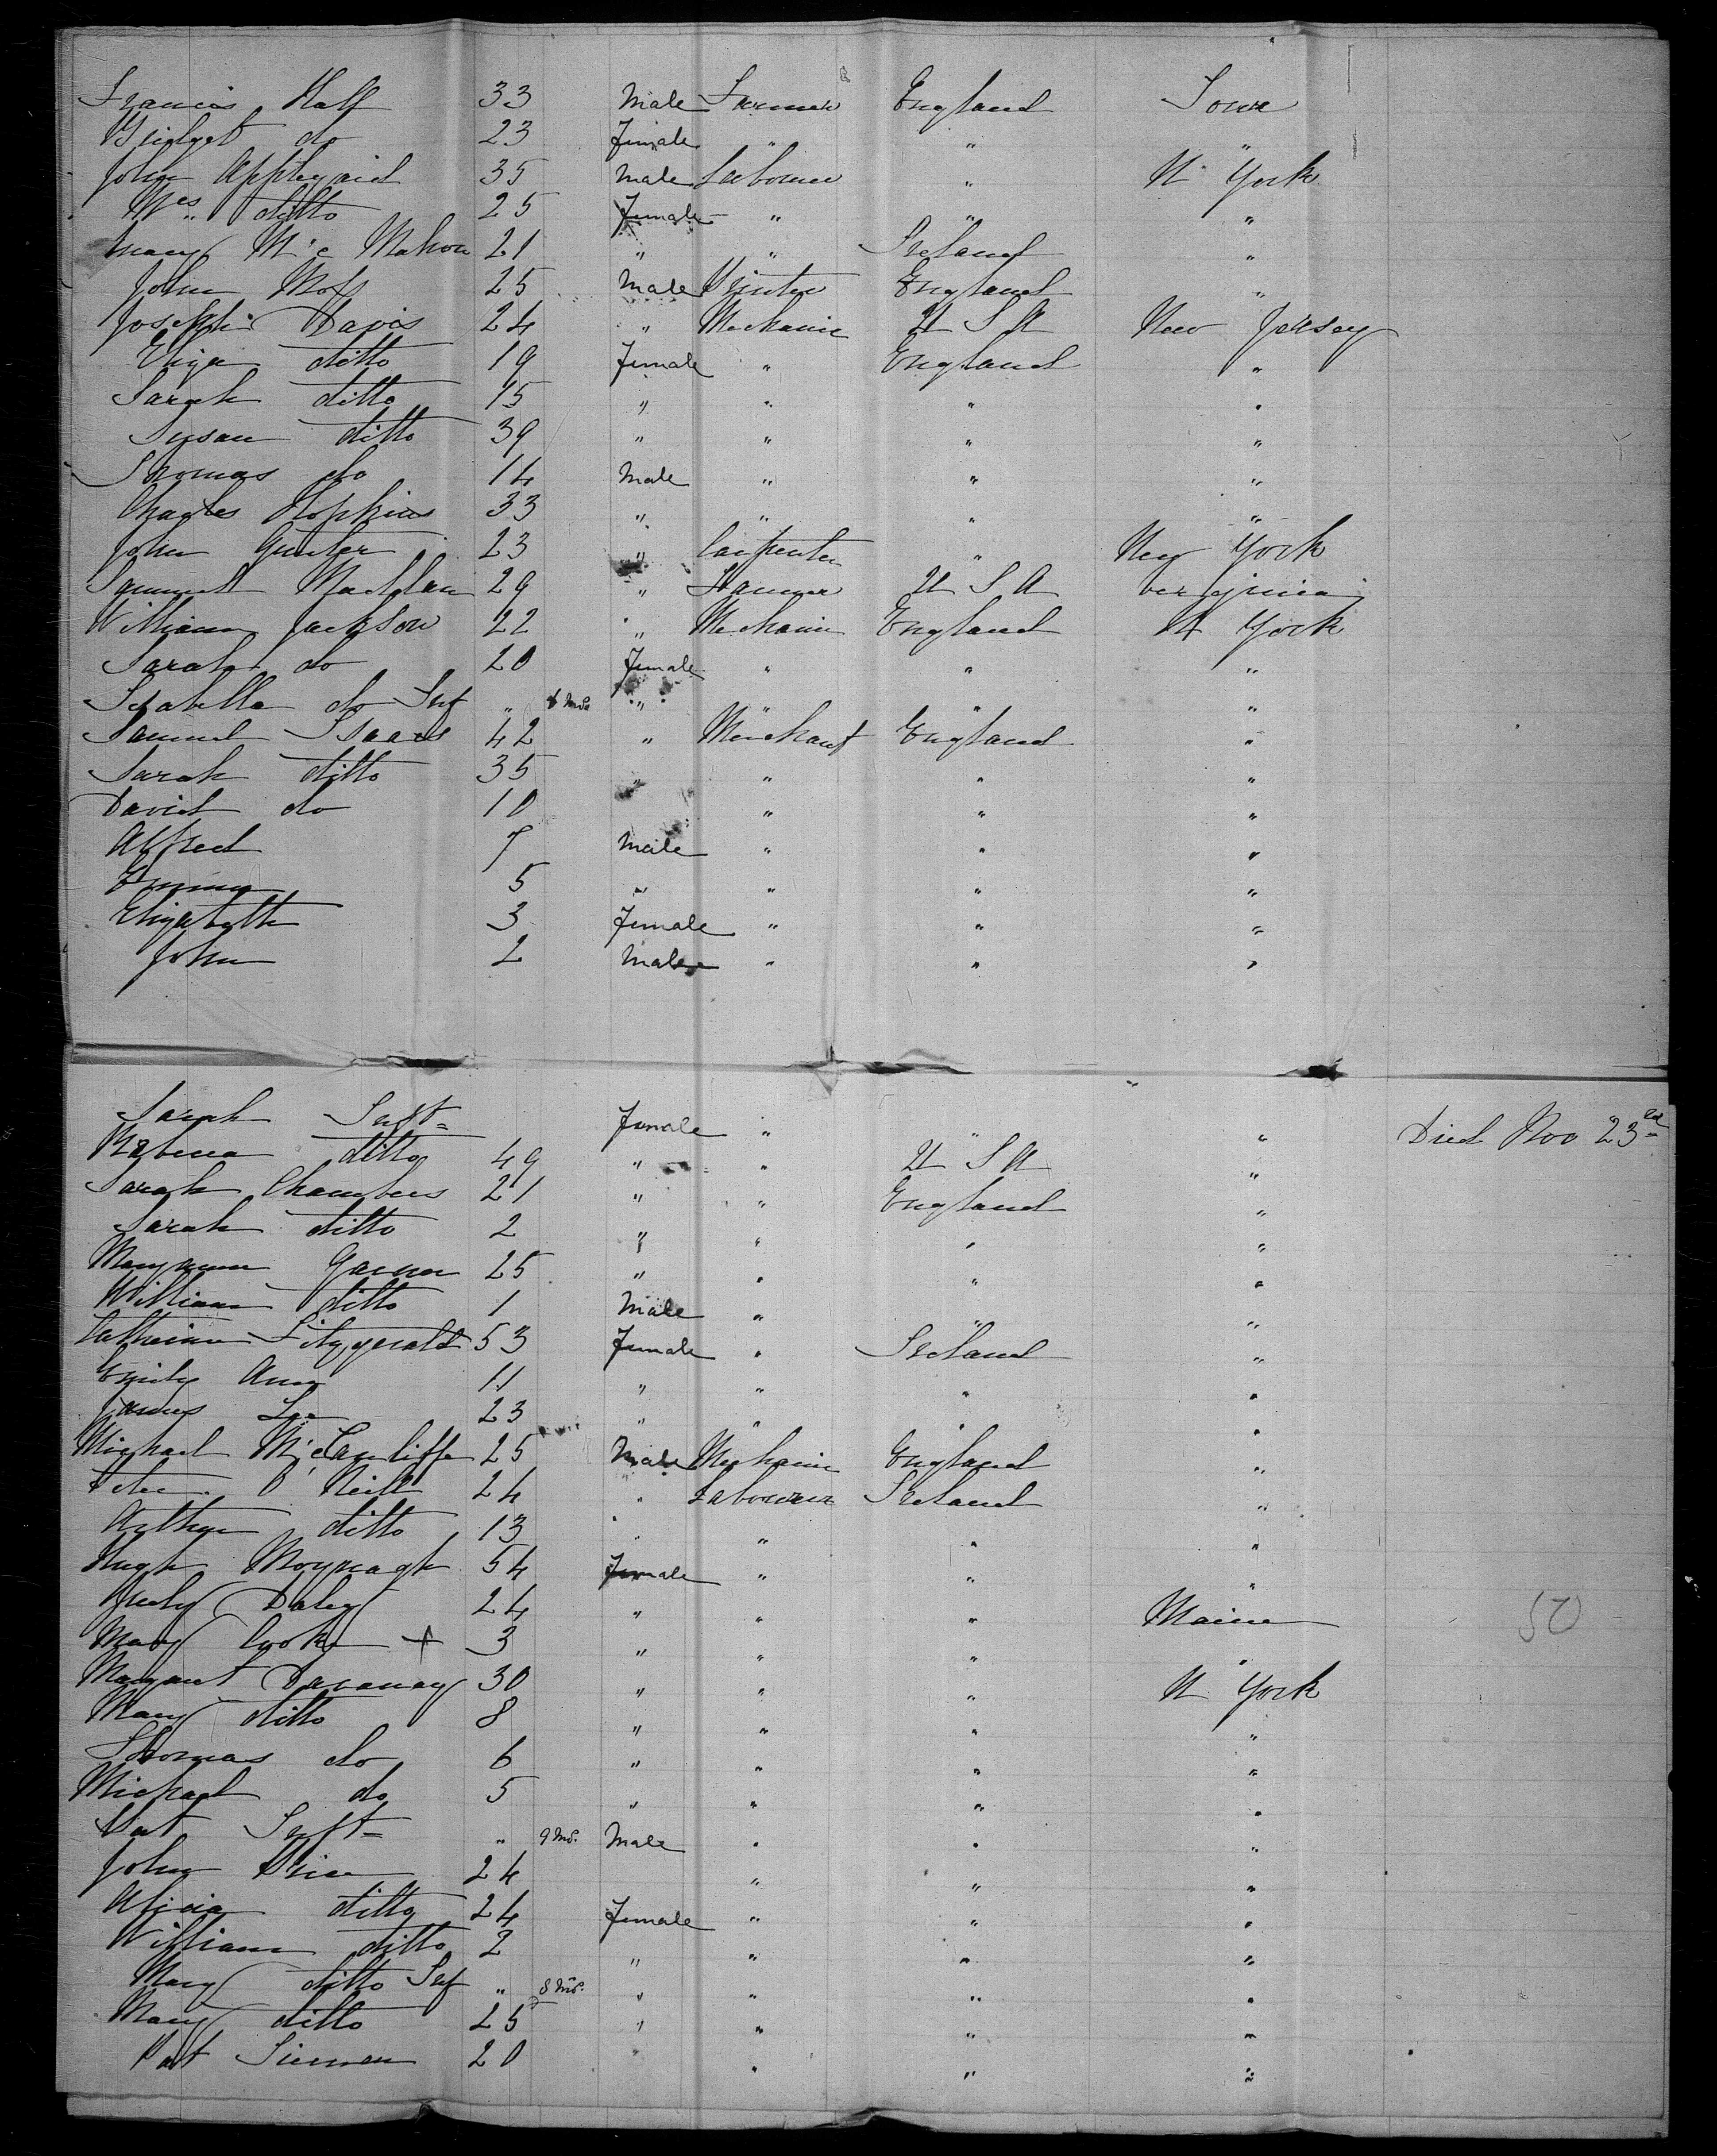 Francis Hall 33 Male Farmer England Iowa
Bridget do 23 Female " " "
John Appleyard 35 Male Labourer " N York
Mrs " ditto 25 Female " " "
Mary Mc Mahon 21 " " Ireland "
John 25 Male England "
Joseph Davis 24 " Mechanic U S A New Jersey
Eliza ditto 19 Female " England "
Sarah ditto 15 " " " "
Susan ditto 39 " " " "
Thomas do 14 Male " " "
Charles Hopkins 33 " " " "
John Gunter 23 " Carpenter " New York
Samuel 29 " U S A verginia
William Jackson 22 " Mechanic England N York
Sarah do 20 Female " " "
Isabella do Inf " Mos " " " "
Samuel Isaacs 42 " Merchant England "
Sarah ditto 35 " " " "
David do 10 " " "
Alfred 7 Male " " "
5 " " " "
Elizabeth 3 Female " " "
John 2 Male " " "
Sarah Inft= Female " " " Died Nov 23rd
Rebecca ditto 49 " " U S A "
Sarah Chambers 21 " " England "
Sarah ditto 2 " " " "
Maryann 25 " " " "
William ditto 1 Male " " "
Catherine Fitzgerald 53 Female " Ireland "
Emily Ann 11 " " " "
James Lee 23 " " " "
Michael 25 Male Mechanic England "
Peter O Neill 24 " Labourer Ireland "
Arthur ditto 13 " " " "
Hugh Moynagh 54 Female " " "
Judy Daley 24 " " " Maine
Mary Cooke + 3 " " " "
Margaret 30 " " " N York
Mary ditto 8 " " " "
Thomas do 6 " " " "
Michael do 5 " " " "
Pat Inft= " 9 Mos. Male " " "
John Price 24 " " "
Alicia ditto 24 Female " " "
William ditto 2 " " " "
Mary ditto Inf " 8 Mos. " " " "
Mary ditto 25 " " " "
Pat 20 " " "
50